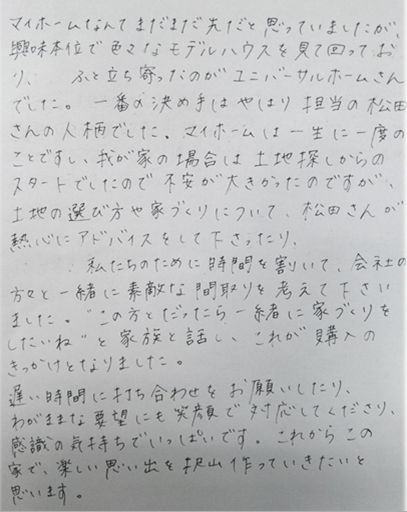 マイホームなんてまだまだ先だと思っていましたが、
興味本位で色々なモデルハウスを見て回ってお
り、 ふと立ち寄ったのがユニバーサルホームさん
でした。一番の決め手はやはり担当の松田
さんの人柄でした。マイホームは一生に一度の
ことですし、我が家の場合は土地探しからの
スタートでしたので不安が大きかったのですが、
土地の選び方や家づくりについて、松田さんが
熱心にアドバイスをして下さったり、
私たちのために時間を割いて、会社の
方々と一緒に素敵な間取りを考えて下さい
ました。"この方とだったら一緒に家づくりを
したいね"と家族と話し、これが購入の
きっかけとなりました。
遅い時間に打ち合わせをお願いしたり、
わがままな要望にも笑顔で対応してくださり、
感識の気持ちでいっぱいです。これからこの
家で、楽しい思い出を沢山作っていきたいと
思います。